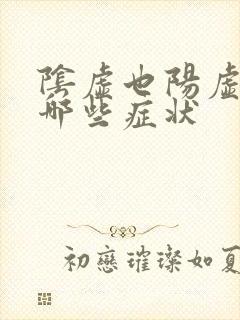 陰虛也陽虛
哪些症状
初戀璀璨如夏